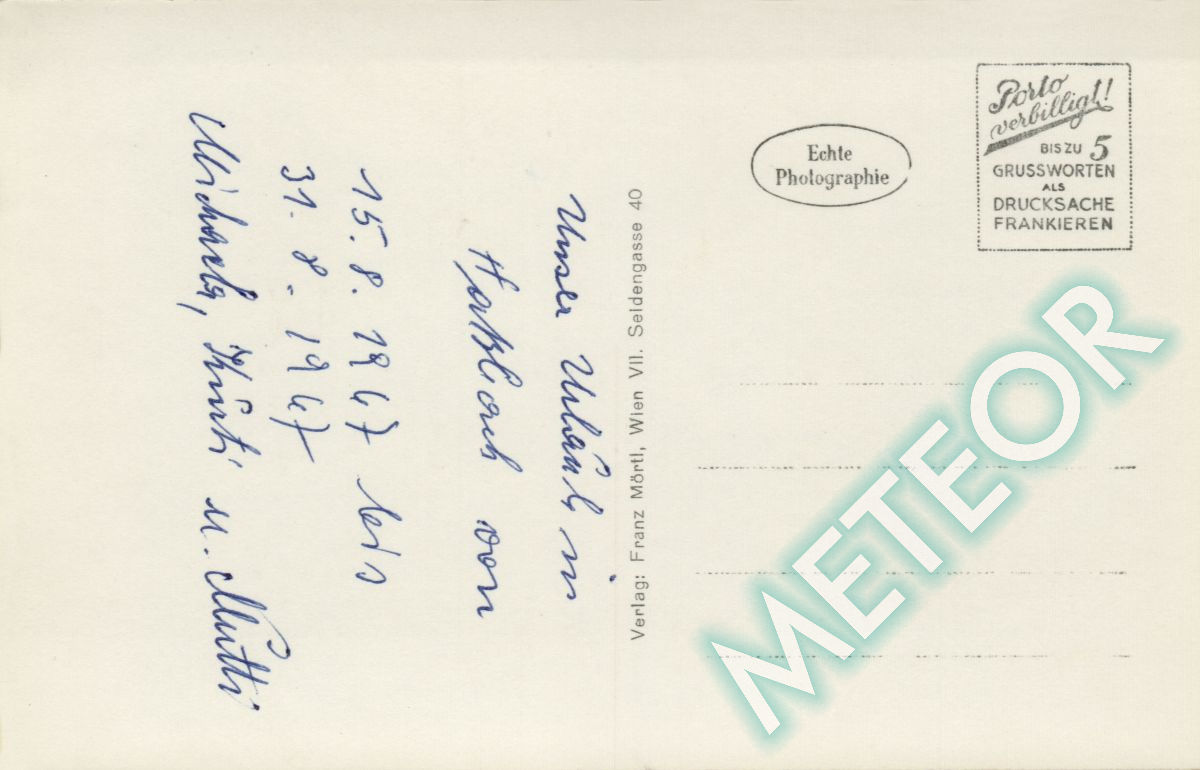 Porto
verbilligt!
BIS ZU 5
GRUSSWORTEN
ALS
DRUCKSACHE
FRANKIEREN
Echte
Photographie
Verlag: Franz Mörtl, Wien VII. Seidengasse 40
Unser Urlaub in
von
15. 8. 1967 bis
31. 8. 1967
Michaela, Kurti u. Mutti
METEOR